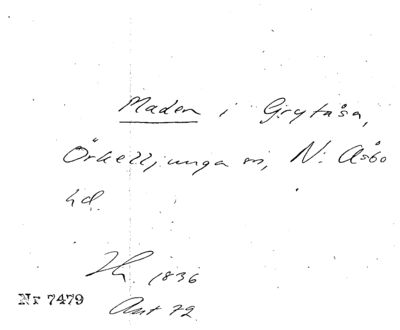 Maden i Grytåsa,
Örkelljunga sn, N: Åsbo
hd.
Hy. 1836
Ant 72
Nr 7479